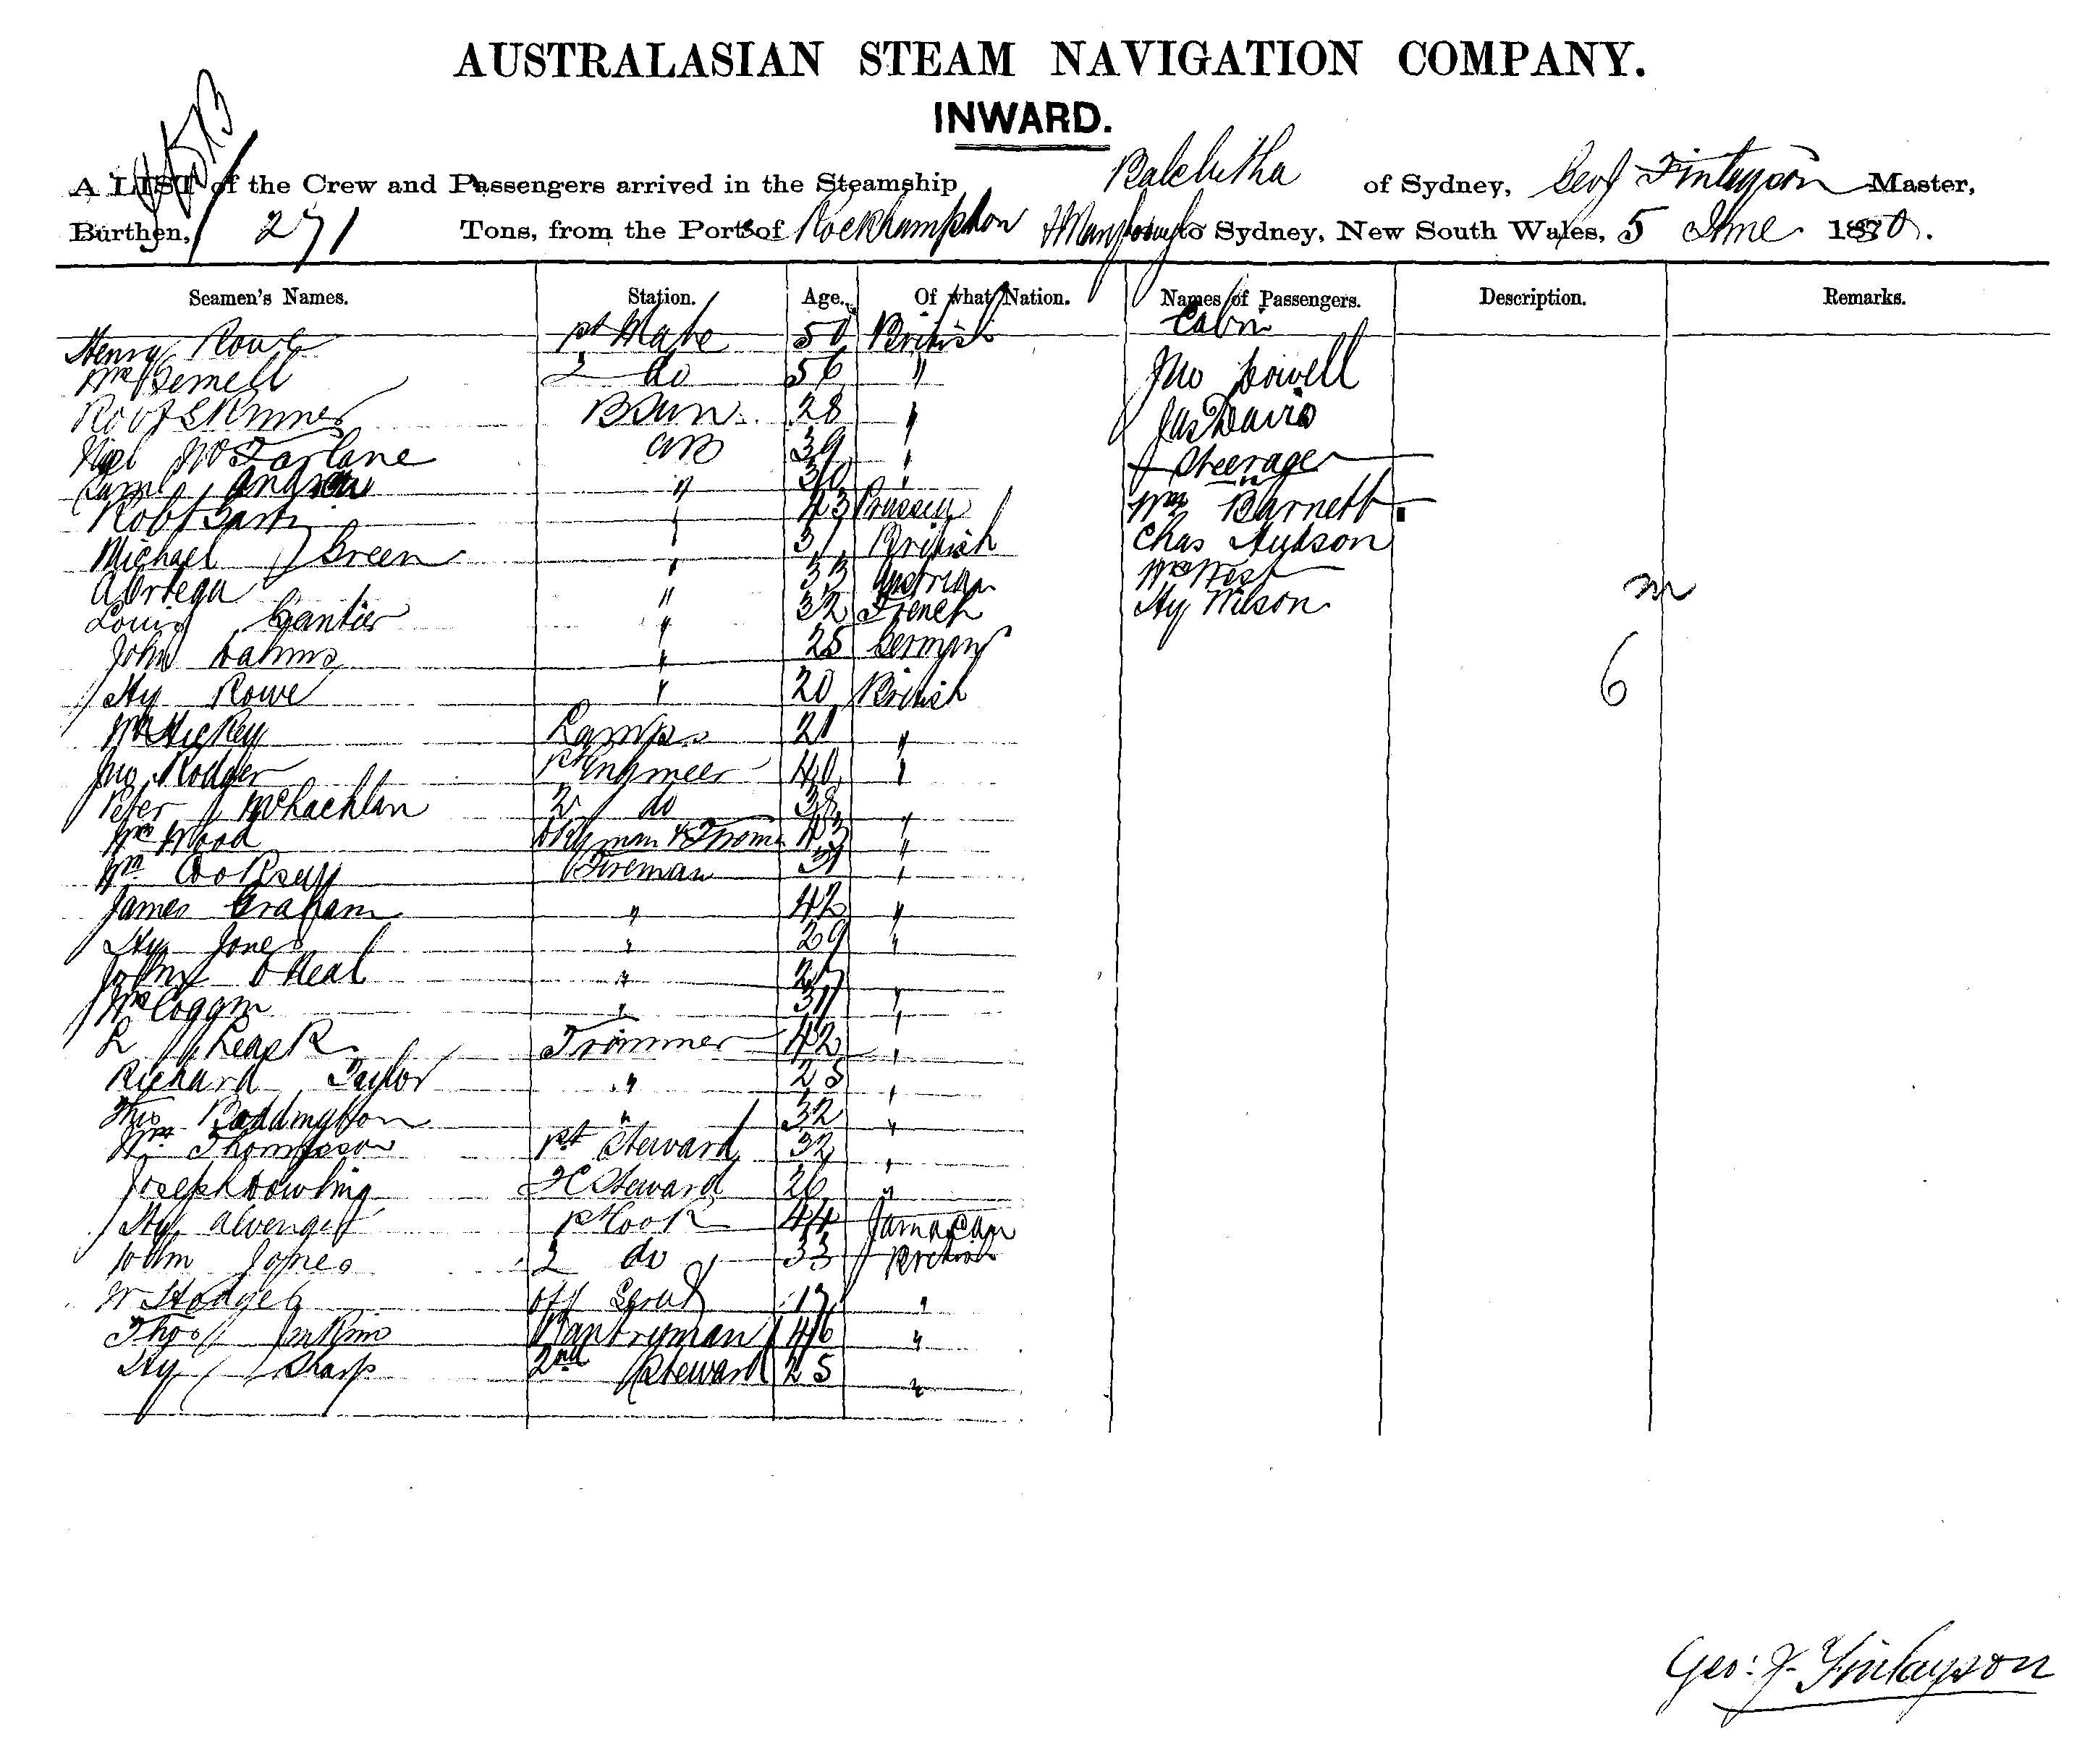 AUSTRALASIAN STEAM NAVIGATION COMPANY.
INWARD.
A LIST of the Crew and Passengers arrived in the Steamship Balclutha of Sydney, Geo J Finlayson Master,
Burthen, 271 Tons, from the Ports of Rockhampton & Maryboro to Sydney, New South Wales, 5 June 1870.
Seamen's Names. Station. Age. Of what Nation. Names of Passengers. Description. Remarks.
Henry Rowe 1st Mate 50 British Cabin
Wm 2 do 56 " Jno Powell
Robt Skinner BSun 28 " Jas Davis
McFarlane AB 39 " Steerage
30 " Wm Barnett
Robt " 43 Prussia Chas Hudson
Michael Green " 31 British Wm West
A Ortega " 33 Austrian Hy Wilson
Louis Gantier " 32 French m
John Dahms " 25 German 6
Hy Rowe " 20 British
Wm Hickey Lamps 21 "
Jno Rodger 1st Engineer 40 "
Peter McLachlan 2 do 38 "
Wm Wood 43 "
Wm Cooksey Fireman "
James Graham " 42 "
Hy Jones " 29 "
John O Neal " 27 "
Wm Coggin " 31 "
L Leask Trimmer 42 "
Richard Taylor " 25 "
Thos Boddington " 32 "
Wm Thompson 1st Steward 32 "
Joseph Dowling FC Steward 26 "
Hy 1st Cook 44 Jamacan
Jones 2 do 33 British
W Hodges Off Servt 17 "
Thos Jenkins Pantryman 46 "
Hy Sharp 2nd Steward 25 "
Geo: J. Finlayson